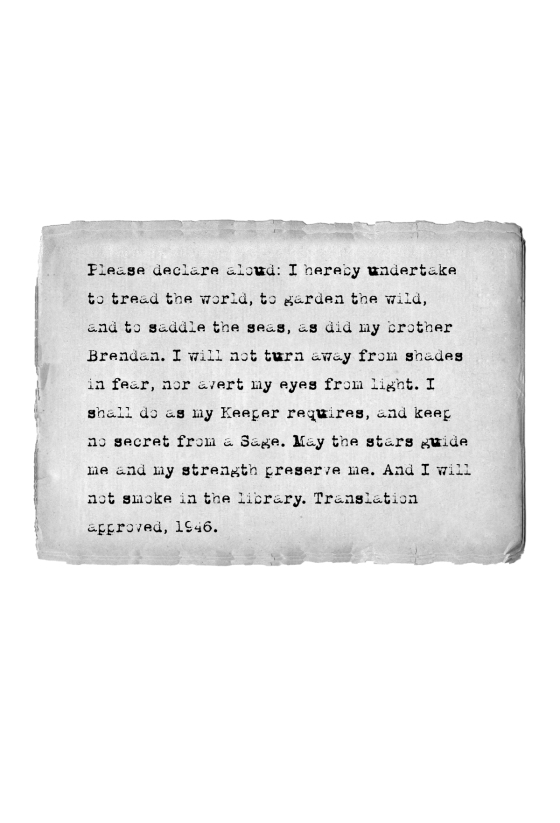 Please declare aloud: I hereby undertake
to tread the world, to garden the wild,
and to saddle the seas, as did my brother
Brendan. I will not turn away from shades
in fear, nor avert my eyes from light. I
shall do as my Keeper requires, and keep
no secret from a Sage. May the stars guide
me and my strength preserve me. And I will
not smoke in the library. Translation
approved, 1946.